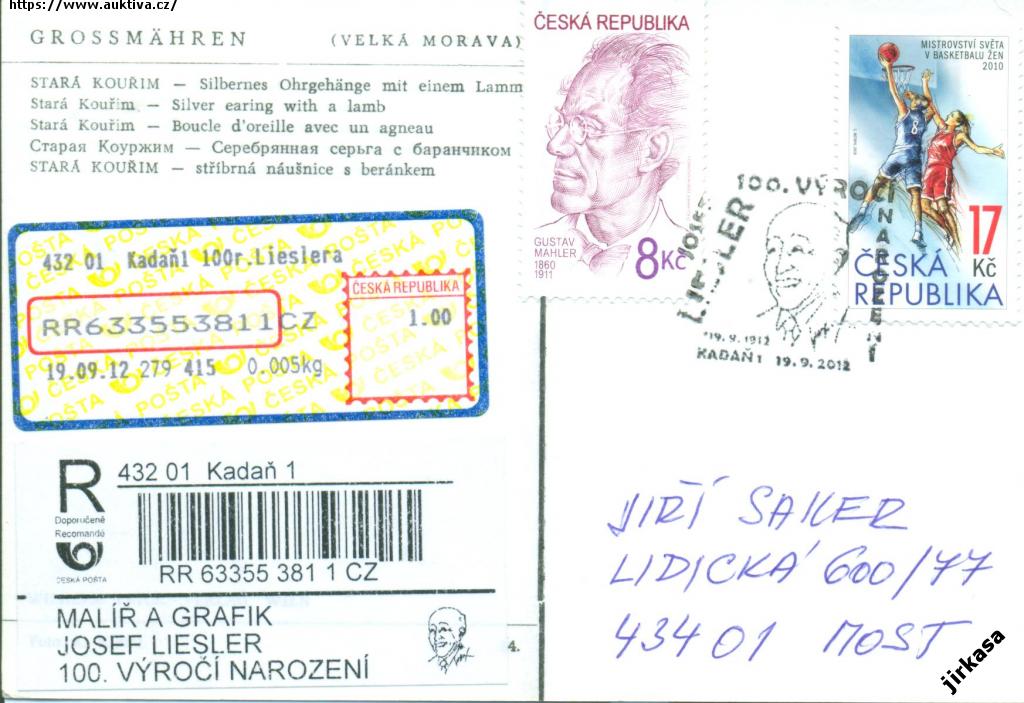 https://www.auktiva.cz/
GROSSMÄHREN (VELKÁ MORAVA)
STARÁ KOUŘIM — Silbernes Ohrgehänge mit einem Lamm
Stará Kouřim — Silver earing with a lamb
Stará Kouřim — Boucle d'oreille avec un agneau
Старая Коуржим — Серебрянная серьга с баранчиком
STARÁ KOUŘIM — stříbrná náušnice s beránkem
ČESKÁ REPUBLIKA
GUSTAV
MAHLER
1860
1911
8Kč
MISTROVSTVÍ SVĚTA
V BASKETBALU ŽEN
2010
8
17
Kč
ČESKÁ
REPUBLIKA
100. VÝROČÍ NAROZENÍ
JOSEF
LIESLER
*19.9.1912
KADAŇ 1 19.9.2012
ČESKÁ POŠTA
432 01 Kadaň1 100r.Lieslera
RR633553811CZ
19.09.12 279 415 0.005kg
ČESKÁ REPUBLIKA
1.00
R
Doporučeně
Recomandé
ČESKÁ POŠTA
432 01 Kadaň 1
RR 63355 381 1 CZ
MALÍŘ A GRAFIK
JOSEF LIESLER
100. VÝROČÍ NAROZENÍ
4.
JIŘÍ SAKER
LIDICKÁ 600/77
434 01 MOST
jirkasa